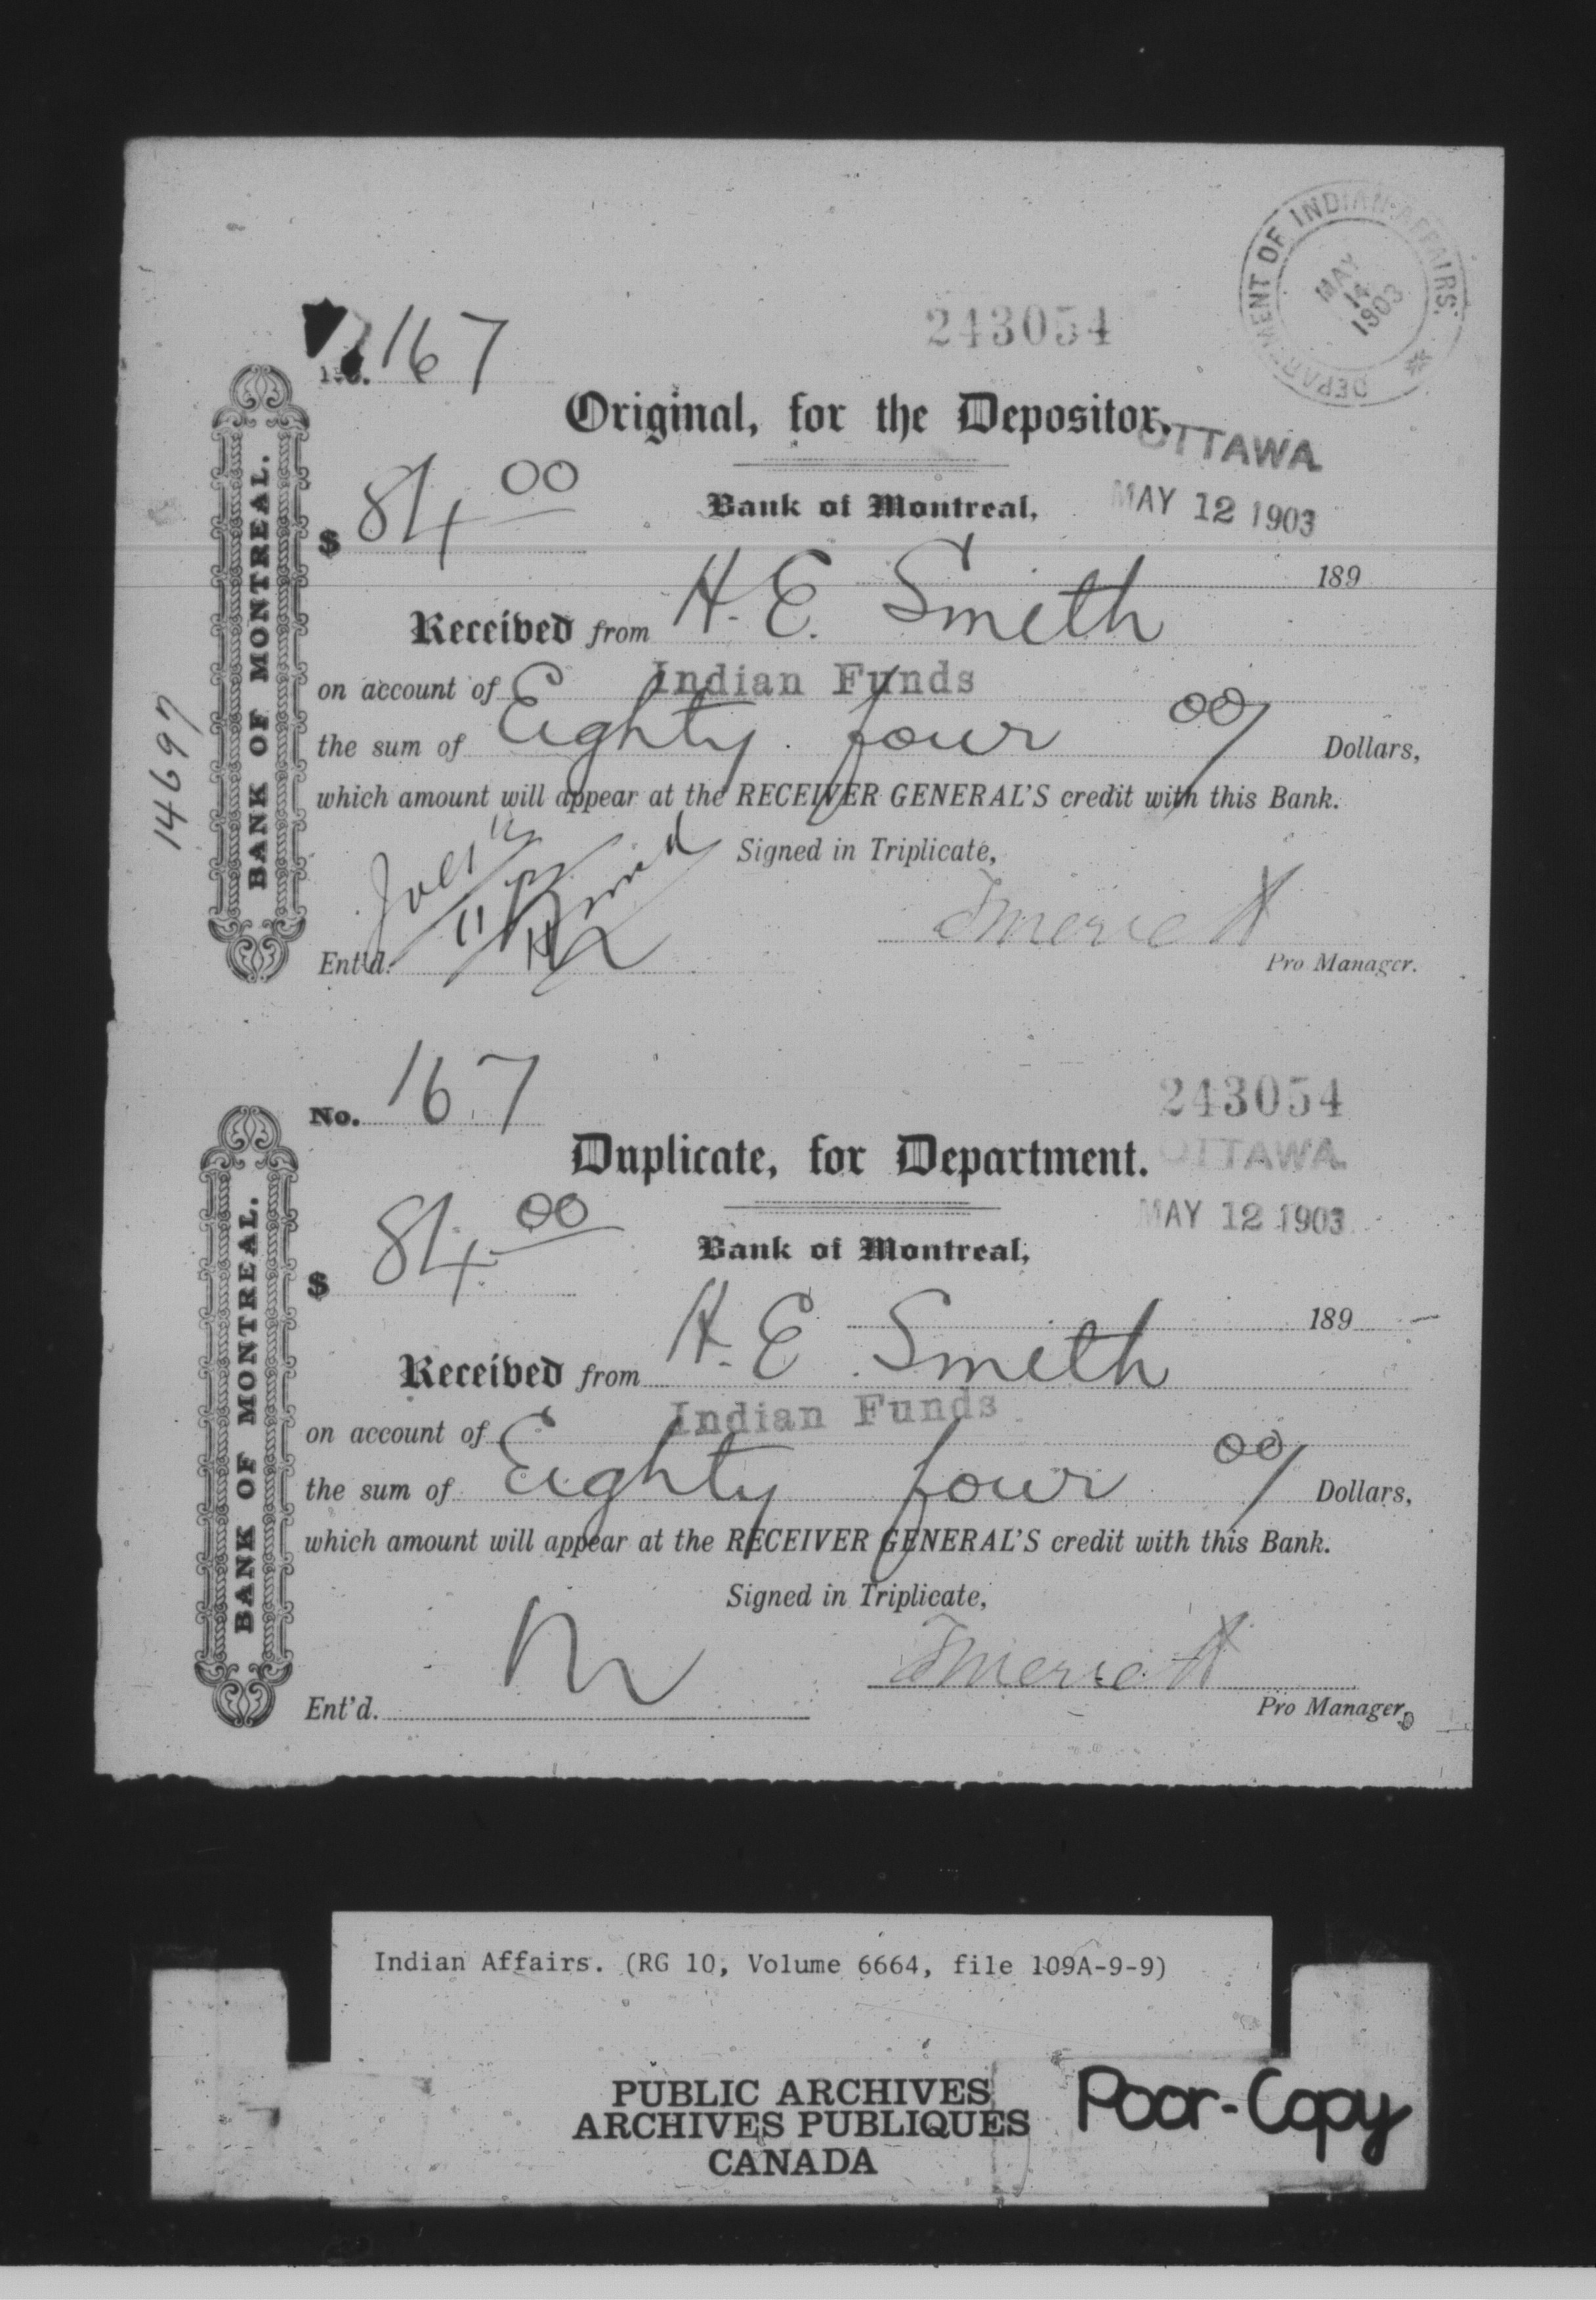 DEPARTMENT OF INDIAN AFFAIRS.
MAY
14
1903
No. 167
243054
Original, for the Depositor.
OTTAWA
$ 84 00
Bank of Montreal,
MAY 12 1903
189
Received from H. E. Smith
on account of Indian Funds
the sum of Eighty four 00/ Dollars,
which amount will appear at the RECEIVER GENERAL'S credit with this Bank.
Signed in Triplicate,
Ent'd.
Pro Manager.
BANK OF MONTREAL.
14697
No. 167
243054
Duplicate, for Department.
OTTAWA
MAY 12 1903
$ 84 00
Bank of Montreal,
189
Received from H. E Smith
on account of Indian Funds
the sum of Eighty four 00/ Dollars,
which amount will appear at the RECEIVER GENERAL'S credit with this Bank.
Signed in Triplicate,
Ent'd.
Pro Manager.
BANK OF MONTREAL.
Indian Affairs. (RG 10, Volume 6664, file 109A-9-9)
PUBLIC ARCHIVES
ARCHIVES PUBLIQUES
CANADA
Poor-Copy